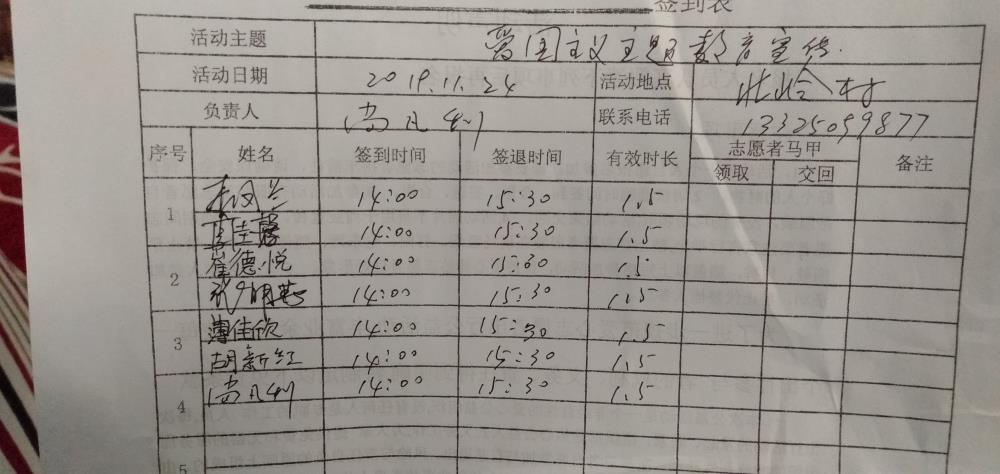 签到表
活动主题 爱国主义主题教育宣传.
活动日期 2019.11.24 活动地点 村
负责人 尚凡利 联系电话 13325059877
序号 姓名 签到时间 签退时间 有效时长 志愿者马甲 备注
领取 交回
1 14:00 15:30 1.5
14:00 15:30 1.5
2 崔德悦 14:00 15:30 1.5
14:00 15:30 1.5
3 薄佳欣 14:00 15:30 1.5
胡新红 14:00 15:30 1.5
4 尚凡利 14:00 15:30 1.5
5